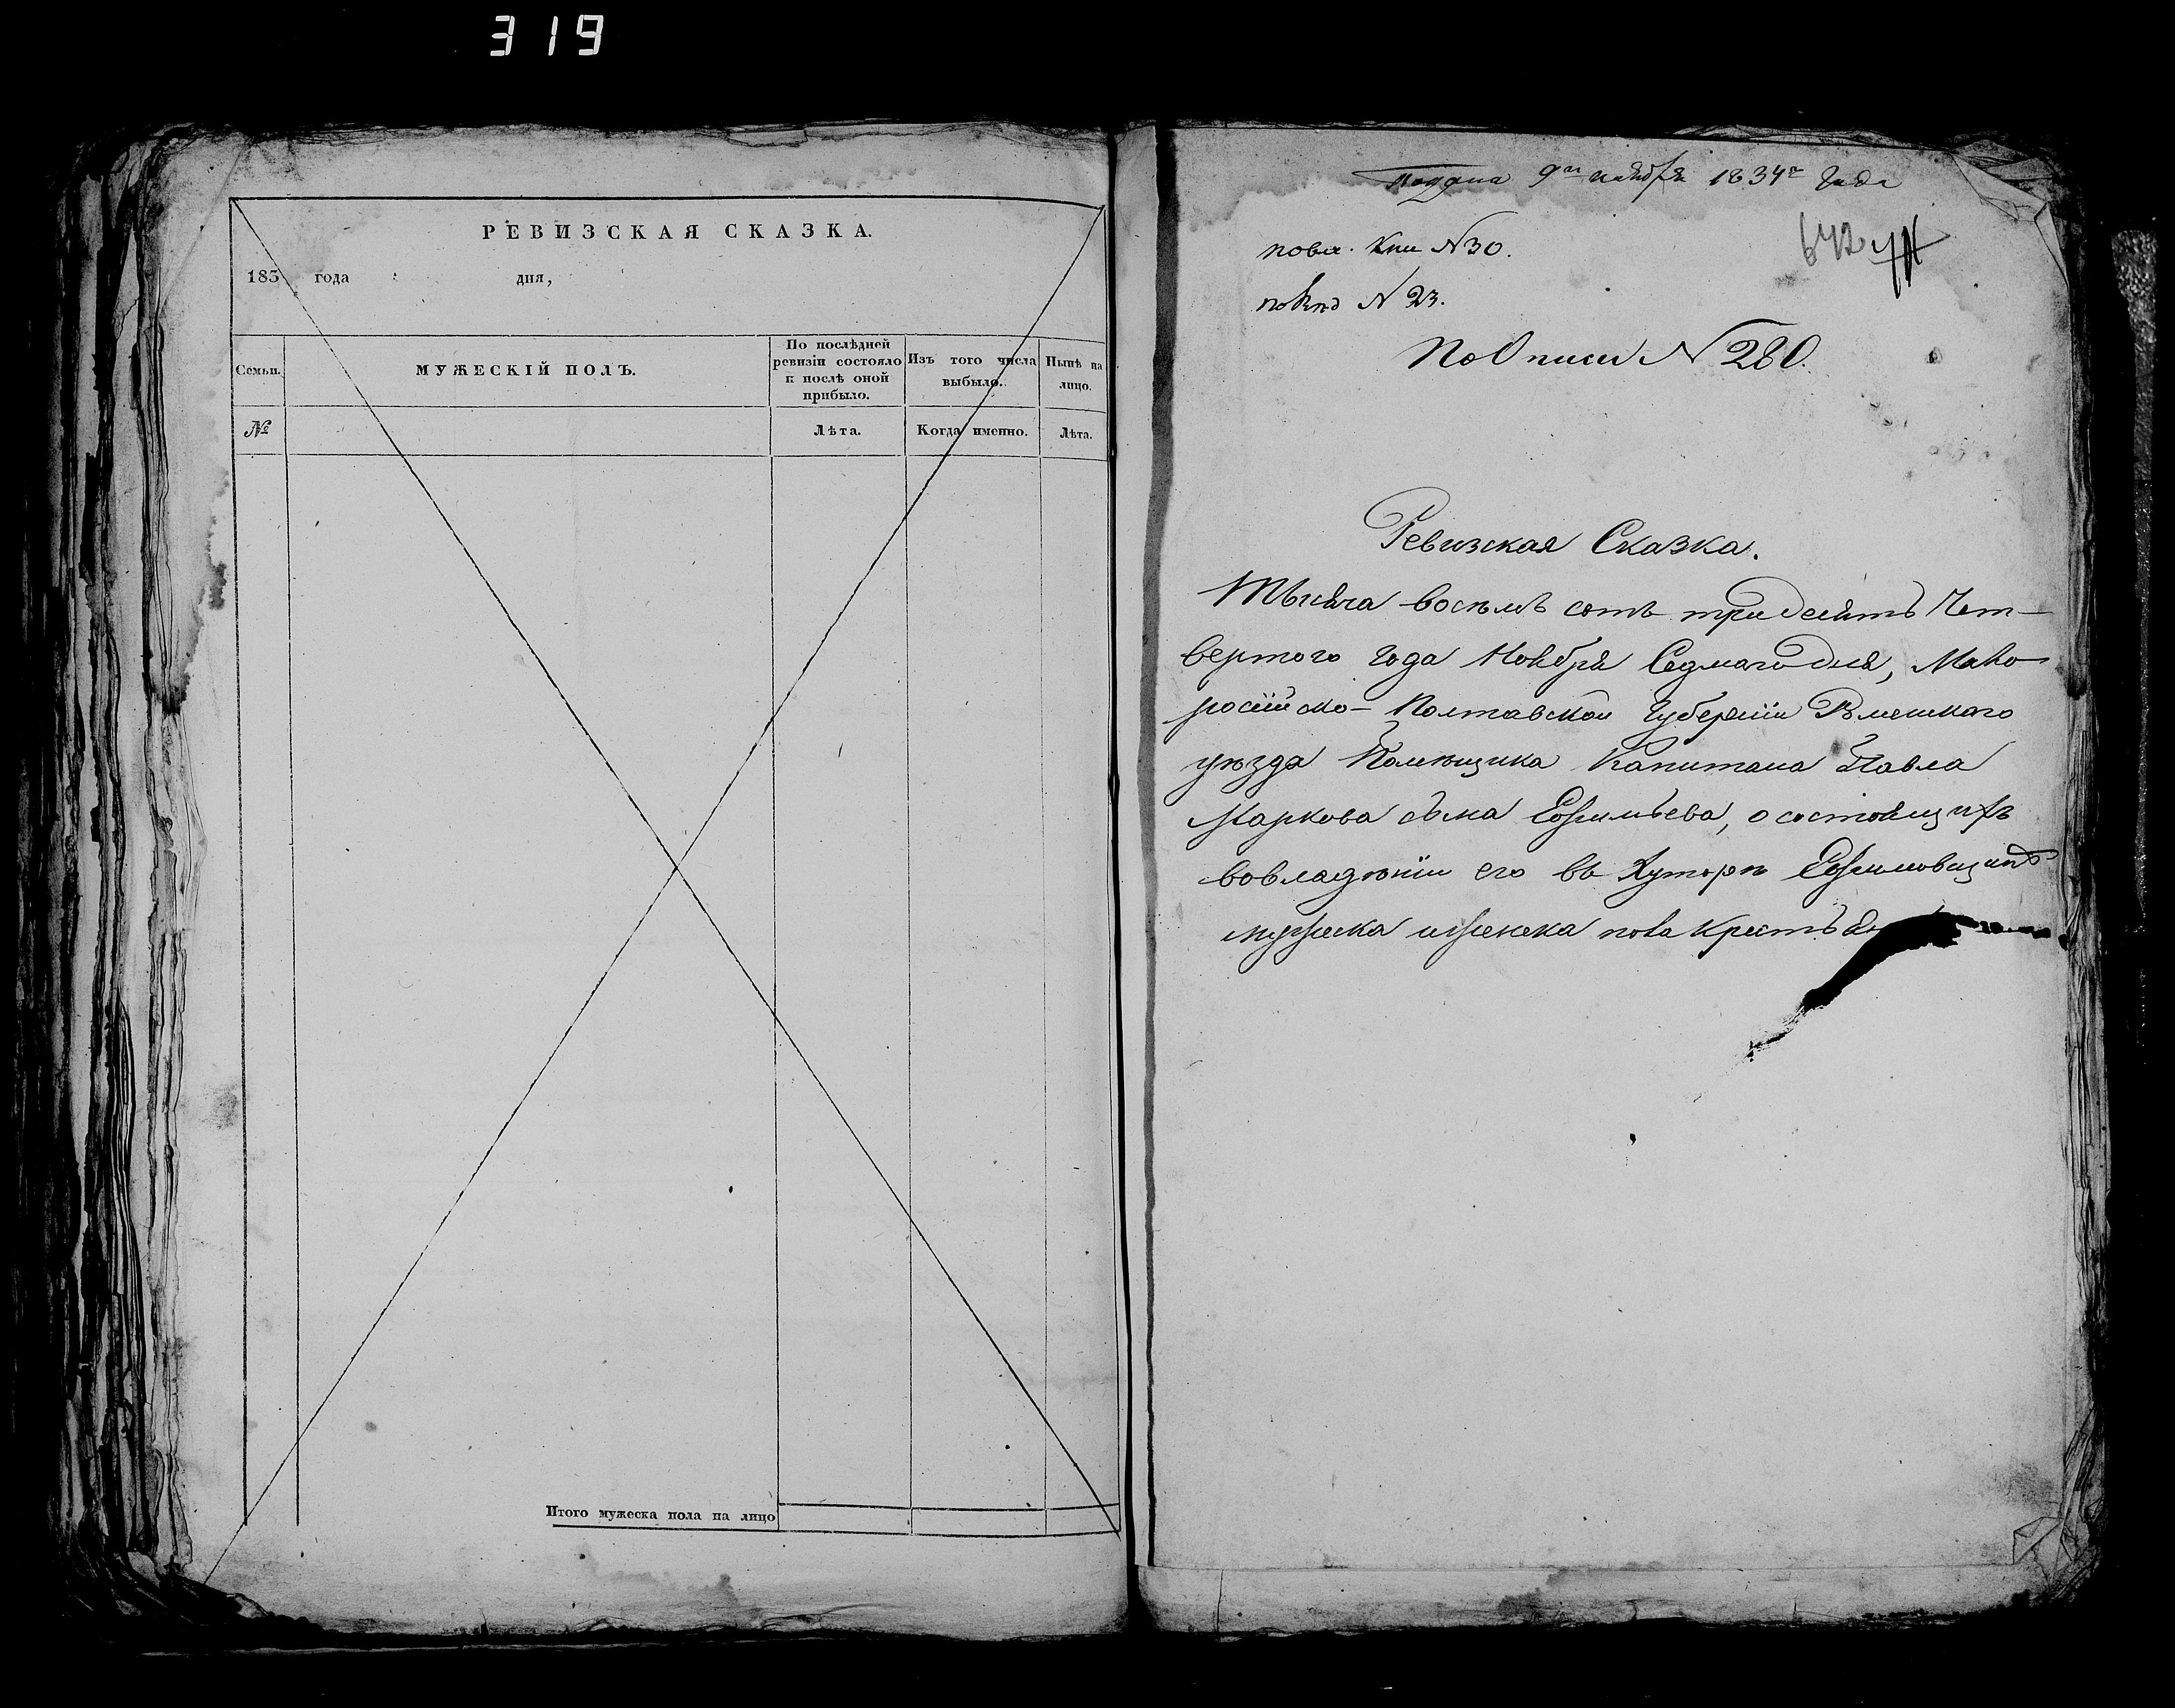 319
РЕВИЗСКАЯ СКАЗКА.
183 года дня,
Семьи.
МУЖЕСКІЙ ПОЛЪ.
По послѣдней ревизіи состояло и послѣ оной прибыло.
Изъ того числа выбыло.
Нынѣ на лицо.
№
Лѣта.
Когда именно.
Лѣта.
Итого мужеска пола на лицо
Подана 9го ноября 1834го Года
N 30.
N 23.
По Описи N 280.
642
Ревизская Сказка.
Тысяча восемь сотъ тридсять Чет-
вертого Года Ноября Седмаго дня, Мало
російско-Полтавской Губерніи Роменского
уѣзда Помѣщика Капитана Павла
Маркова сына Ефимьева, о состоящихъ
вовладѣніи его въ Хуторѣ Ефимовщинѣ
мужеска иженска пола Крестьян